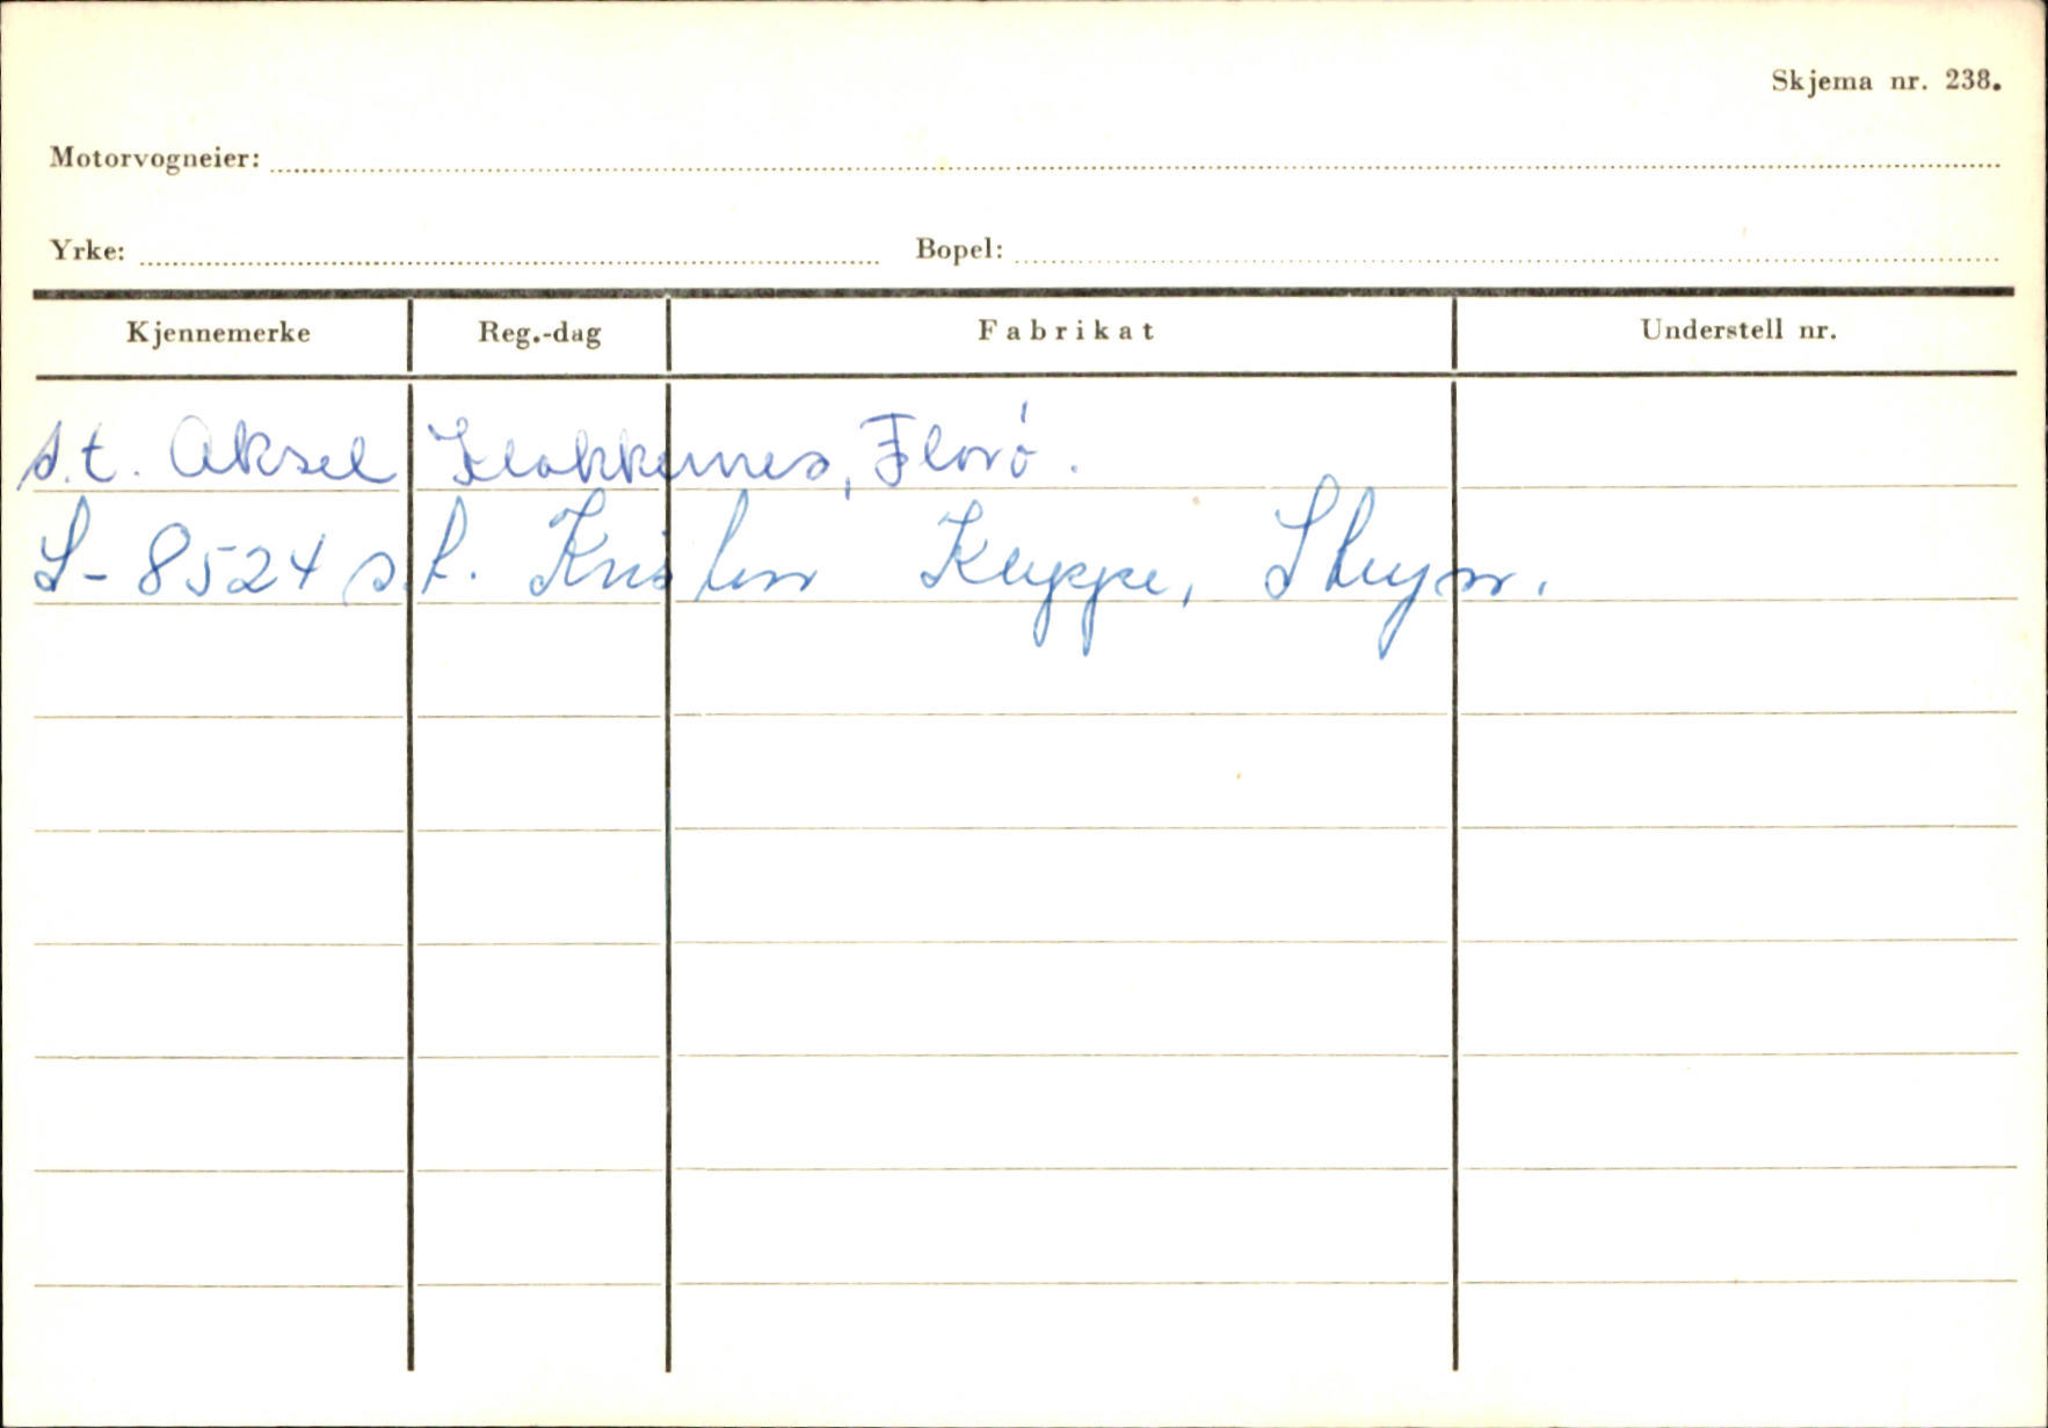 Skjema nr. 238.
Motorvogneier:
Yrke: Bopel:
Kjennemerke Reg.-dag Fabrikat Understell nr.
s.t. Aksel Klakkennes, Florö.
S-8524 s.t. Kristen Kleppe, Stryn.